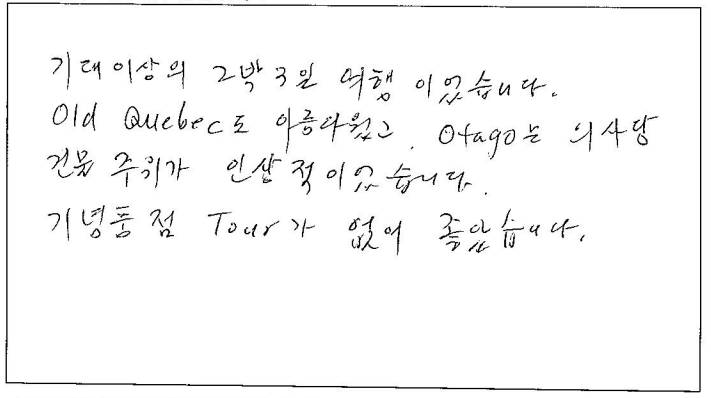 기대이상의 2박 3일 여행 이었습니다.
Old Quebec도 아름다웠고. Otago는 의사당
건물 주위가 인상적이었습니다.
기념품점 Tour가 없어 좋았습니다.